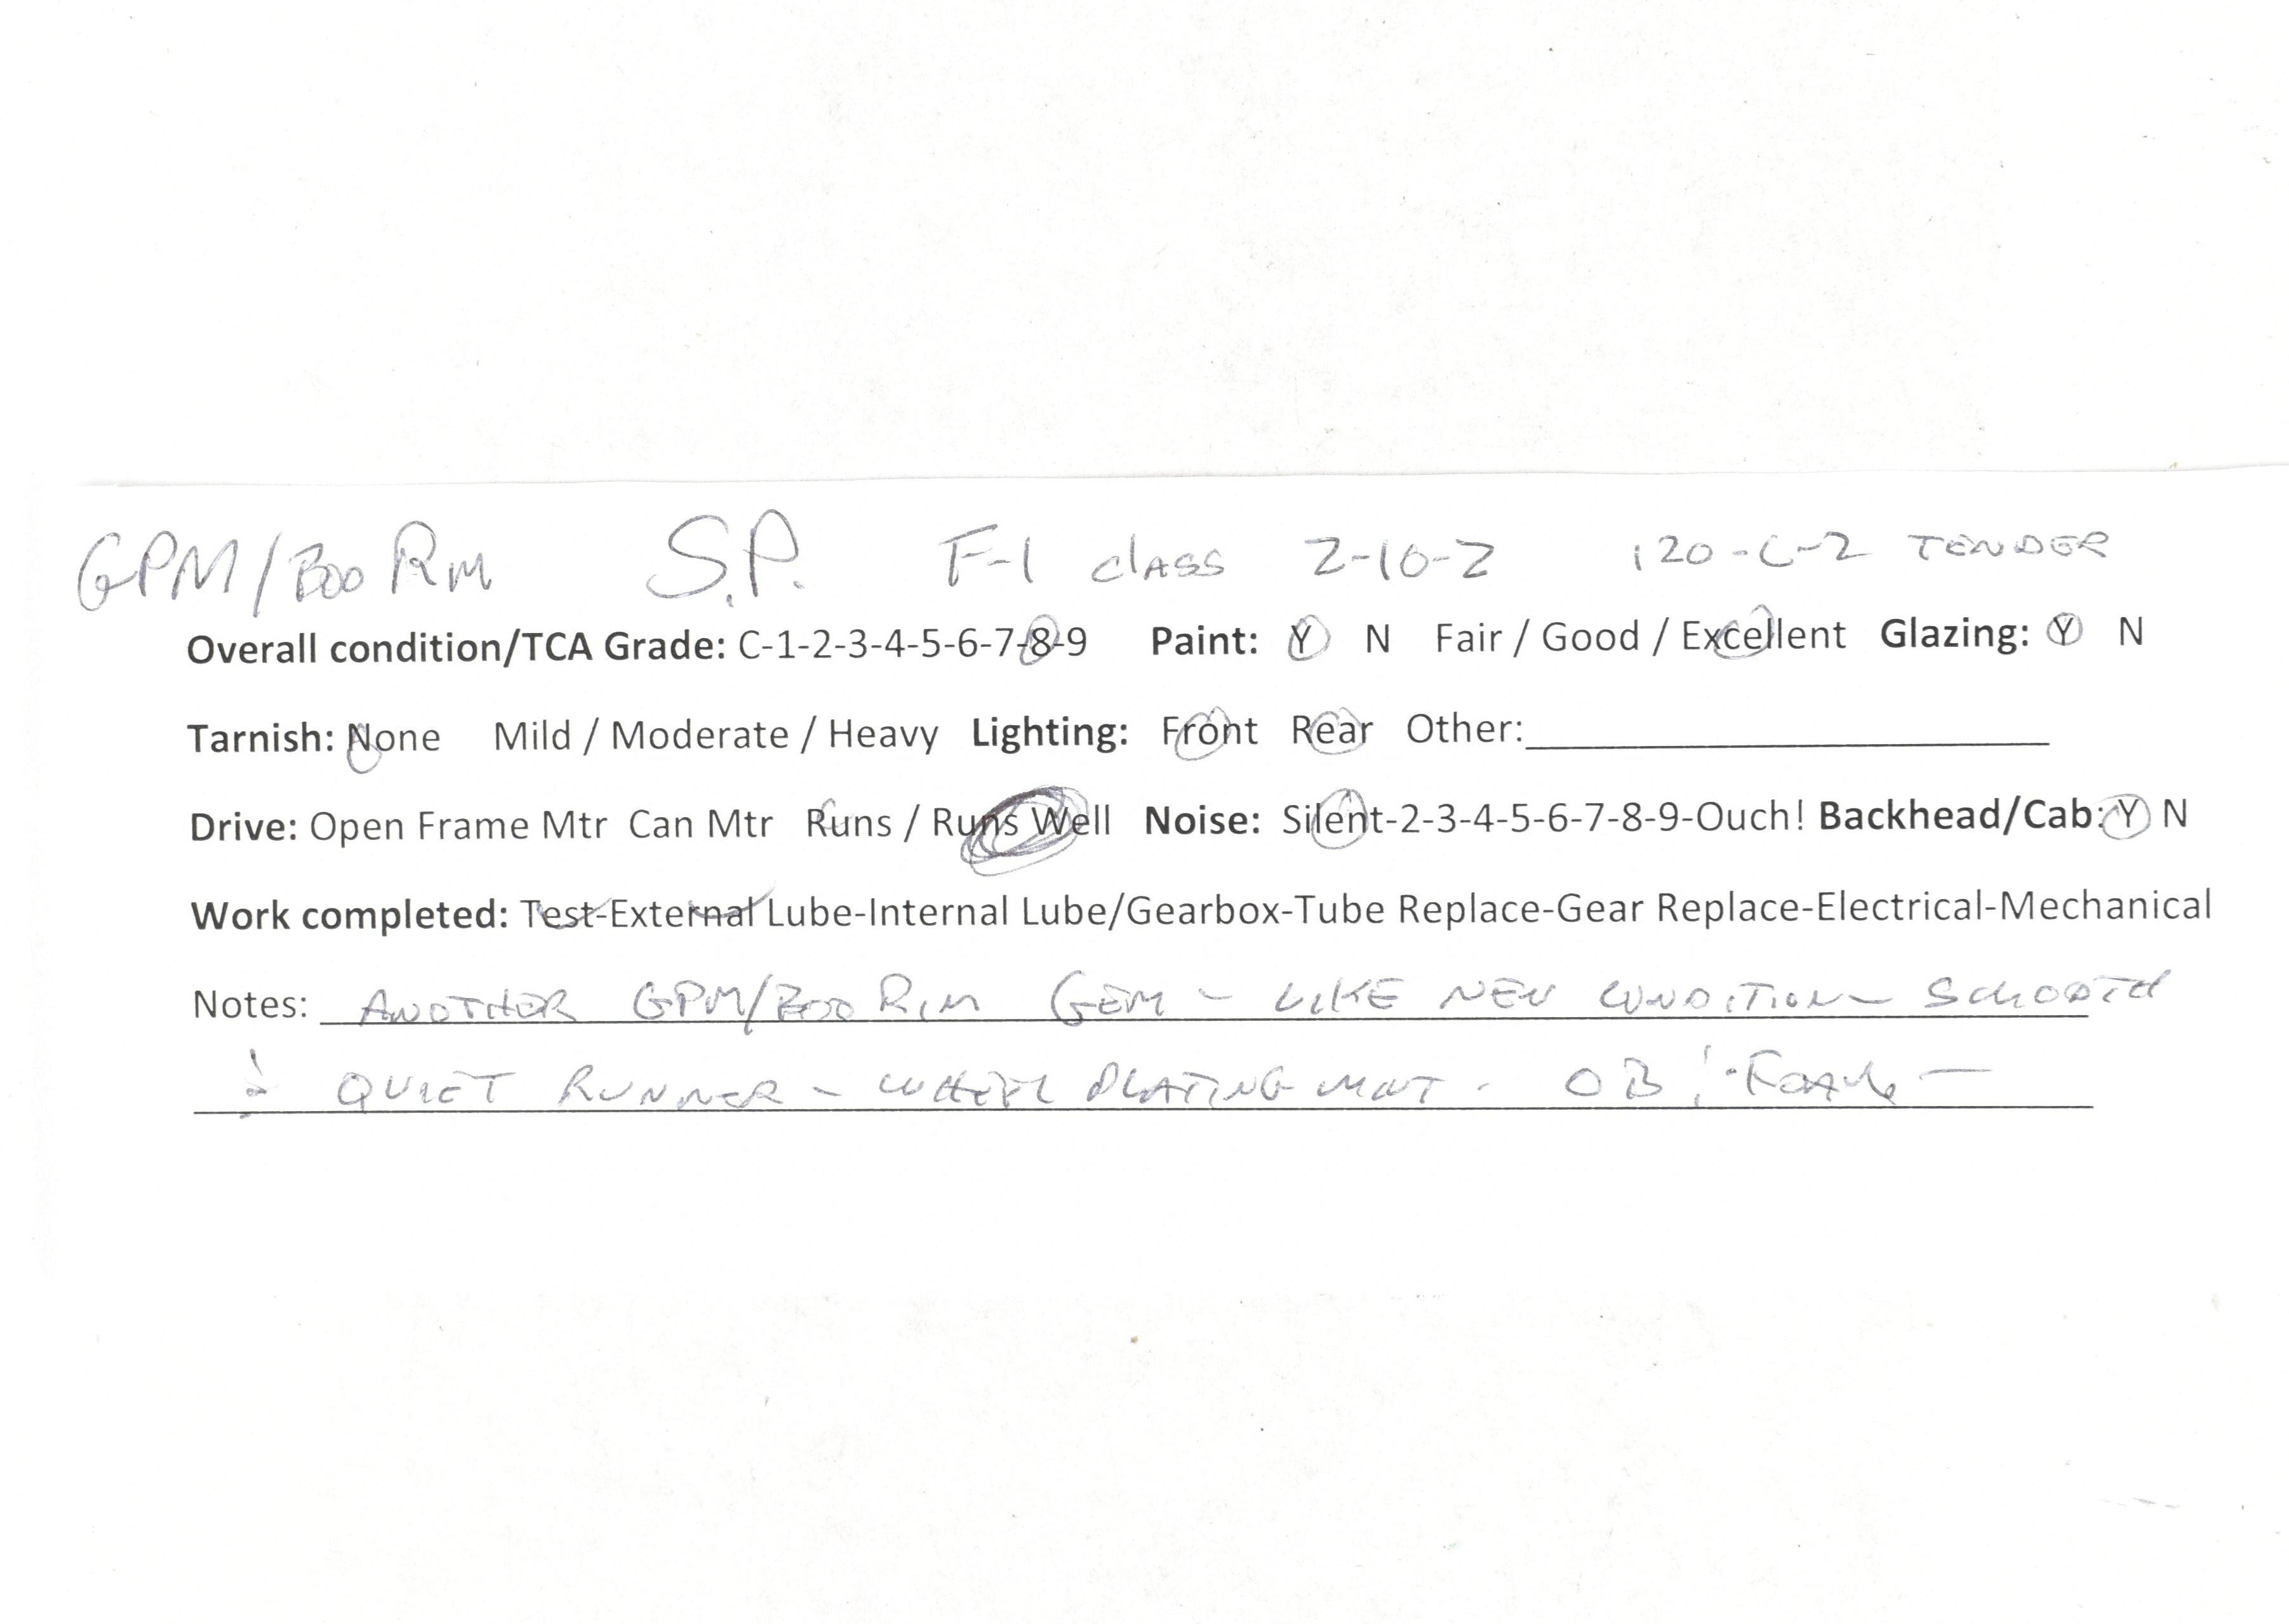 GPM/BOO RM S.P. F-1 CLASS 2-10-2 120-C-2 TENDER
Overall condition/TCA Grade: C-1-2-3-4-5-6-7-8-9 Paint: Y N Fair / Good / Excellent Glazing: Y N
Tarnish: None Mild / Moderate / Heavy Lighting: Front Rear Other:
Drive: Open Frame Mtr Can Mtr Runs / Runs Well Noise: Silent-2-3-4-5-6-7-8-9-Ouch! Backhead/Cab: Y N
Work completed: Test-External Lube-Internal Lube/Gearbox-Tube Replace-Gear Replace-Electrical-Mechanical
Notes: ANOTHER GPM/BOO RIM GEM - LIKE NEW CONDITION - SMOOTH
& QUIET RUNNER - WHEEL PLATING MINT. OB & FOAM -